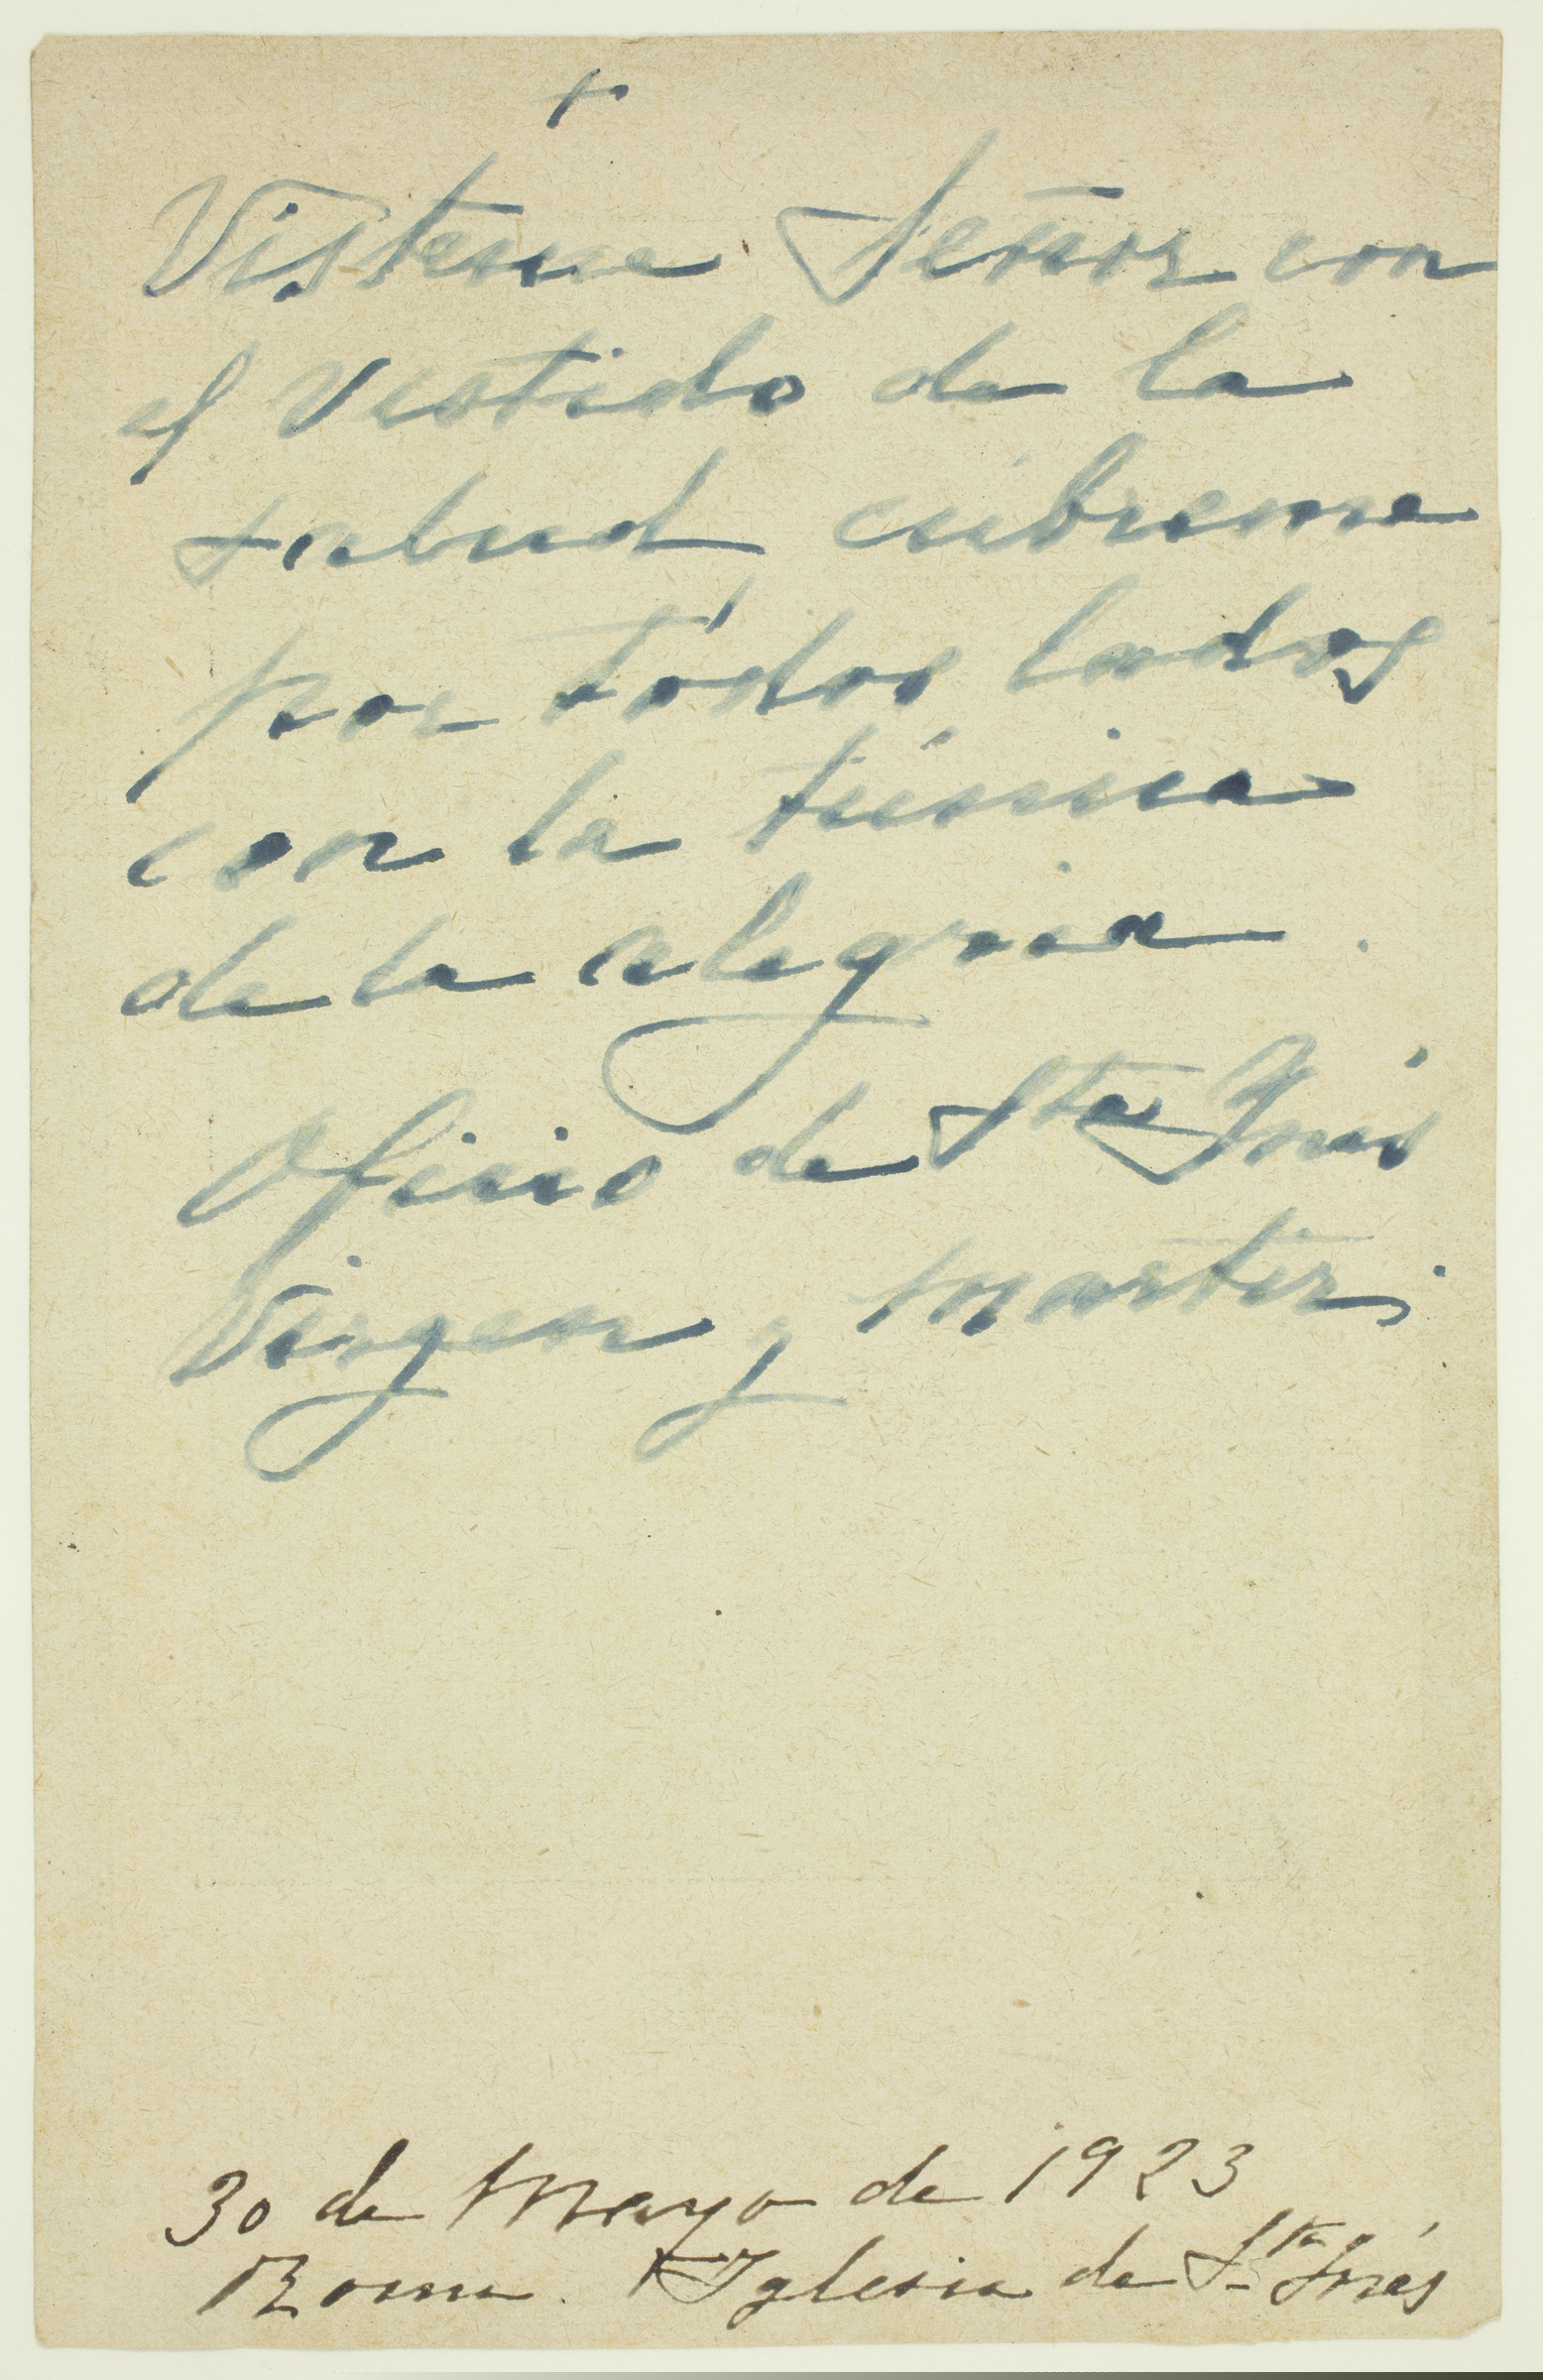 +
Visteme Señor con
el vestido de la
salud cúbreme
por todos lados
con la túnica
de la alegria.
Oficio de Sta Ynés
Virgen y martir.
30 de Mayo de 1923
Roma. Iglesia de Sta Inés